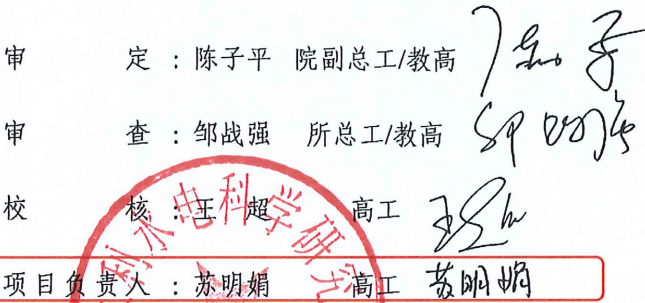 审 定 : 陈子平 院副总工/教高
审 查 : 邹战强 所总工/教高
校 核 : 王 超 高工
项目负责人 : 苏明娟 高工 苏明娟
利水电科学研究